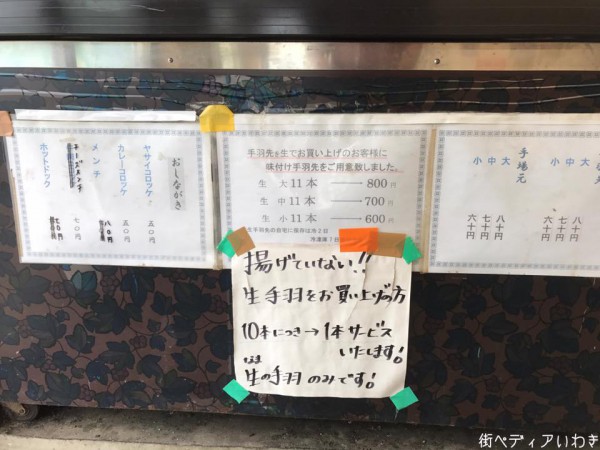 おしながき
ヤサイコロッケ 五〇円
カレーコロッケ 五〇円
メンチ 八〇円
ホットドック 七〇円
手羽先を生でお買い上げのお客様に
味付け手羽先をご用意致しました。
生 大11本 ―― 800円
生 中11本 ―― 700円
生 小11本 ―― 600円
生手羽先の自宅に保存は冷2日
冷凍庫7日
手場元
大 八十円
中 七十円
小 六十円
大 八十円
中 七十円
小 六十円
揚げていない!!
生手羽をお買い上げの方
10本につき→1本サービス
いたします!
生の手羽のみです!
街ペディアいわき